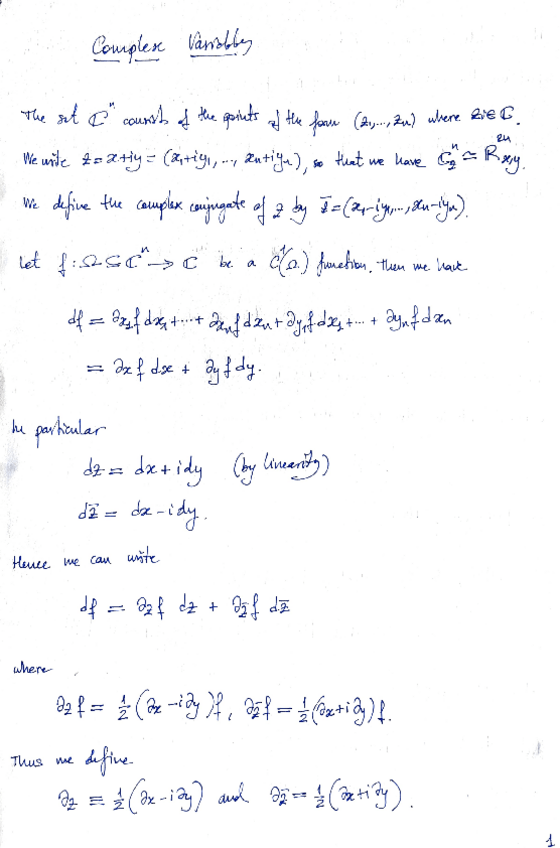 Complex Variables
The set ℂⁿ consists of the points of the form (z₁,…,zₙ) where zᵢ∈ℂ.
We write z = x+iy = (x₁+iy₁, …, xₙ+iyₙ), so that we have ℂⁿ_z ≃ ℝ²ⁿ_{x,y}.
We define the complex conjugate of z by z̄=(x₁-iy₁,…,xₙ-iyₙ).
Let f : Ω⊆ℂⁿ → ℂ be a C¹(Ω) function. Then we have
df = ∂x₁f dx₁+⋯+∂xₙf dxₙ+∂y₁f dx₁+⋯+ ∂yₙf dxₙ
= ∂x f dx + ∂y f dy.
In particular
dz = dx + idy (by linearity)
dz̄ = dx - idy.
Hence we can write
df = ∂z f dz + ∂z̄ f dz̄
where
∂z f = ½(∂x - i∂y)f, ∂z̄ f = ½(∂x+i∂y)f.
Thus we define
∂z ≡ ½(∂x-i∂y) and ∂z̄ = ½(∂x+i∂y).
1